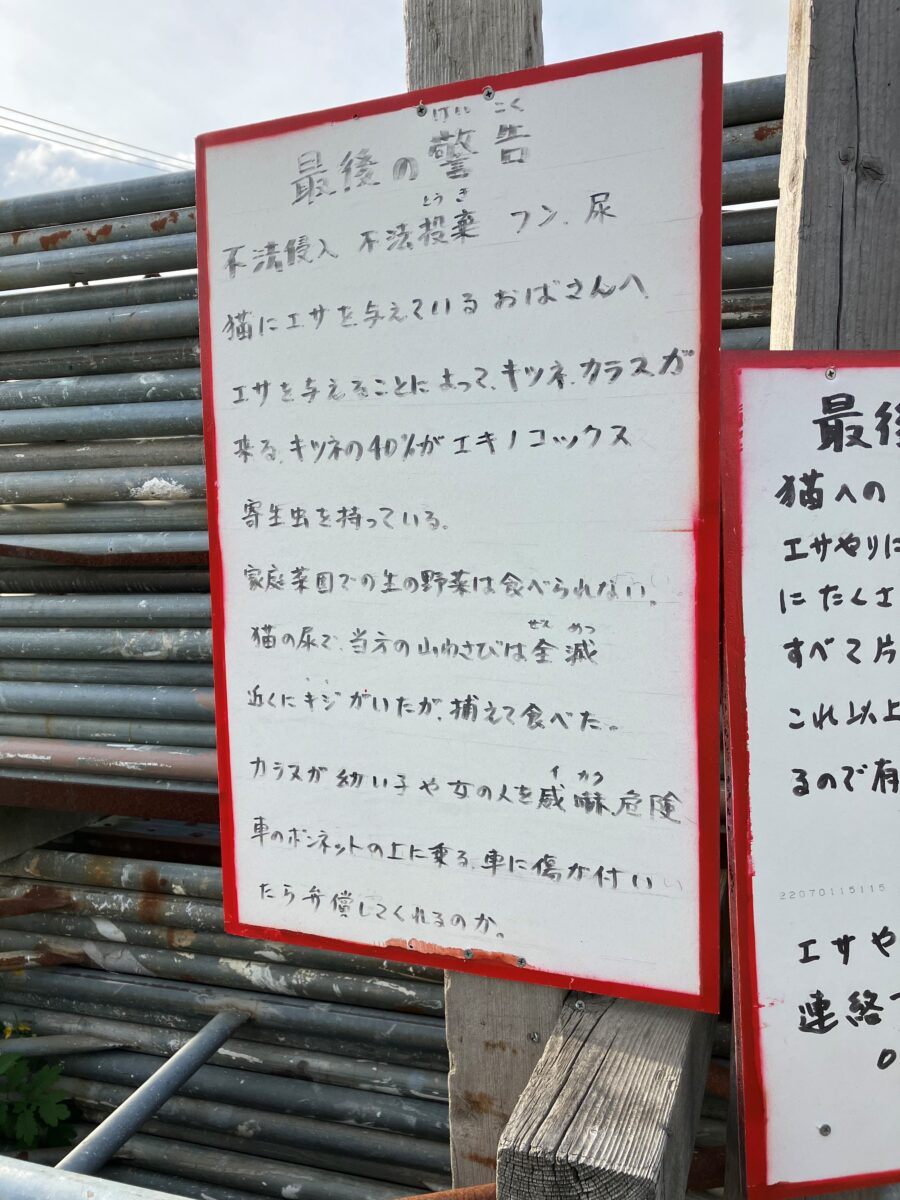 けいこく
最後の警告
とうき
不法侵入 不法投棄 フン、尿
猫にエサを与えているおばさんへ
エサを与えることによって、キツネ、カラスが
来る、キツネの40%がエキノコックス
寄生虫を持っている。
家庭菜園での生の野菜は食べられない。
ぜんめつ
猫の尿で、当方の山わさびは全滅
近くにキジがいたが、捕えて食べた。
イカク
カラスが幼い子や女の人を威嚇、危険
車のボンネットの上に乗る、車に傷が付い
たら弁償してくれるのか。
最後
猫への
エサやりに
にたくさ
すべて片
これ以上
るので有
22070115115
エサや
連絡
0